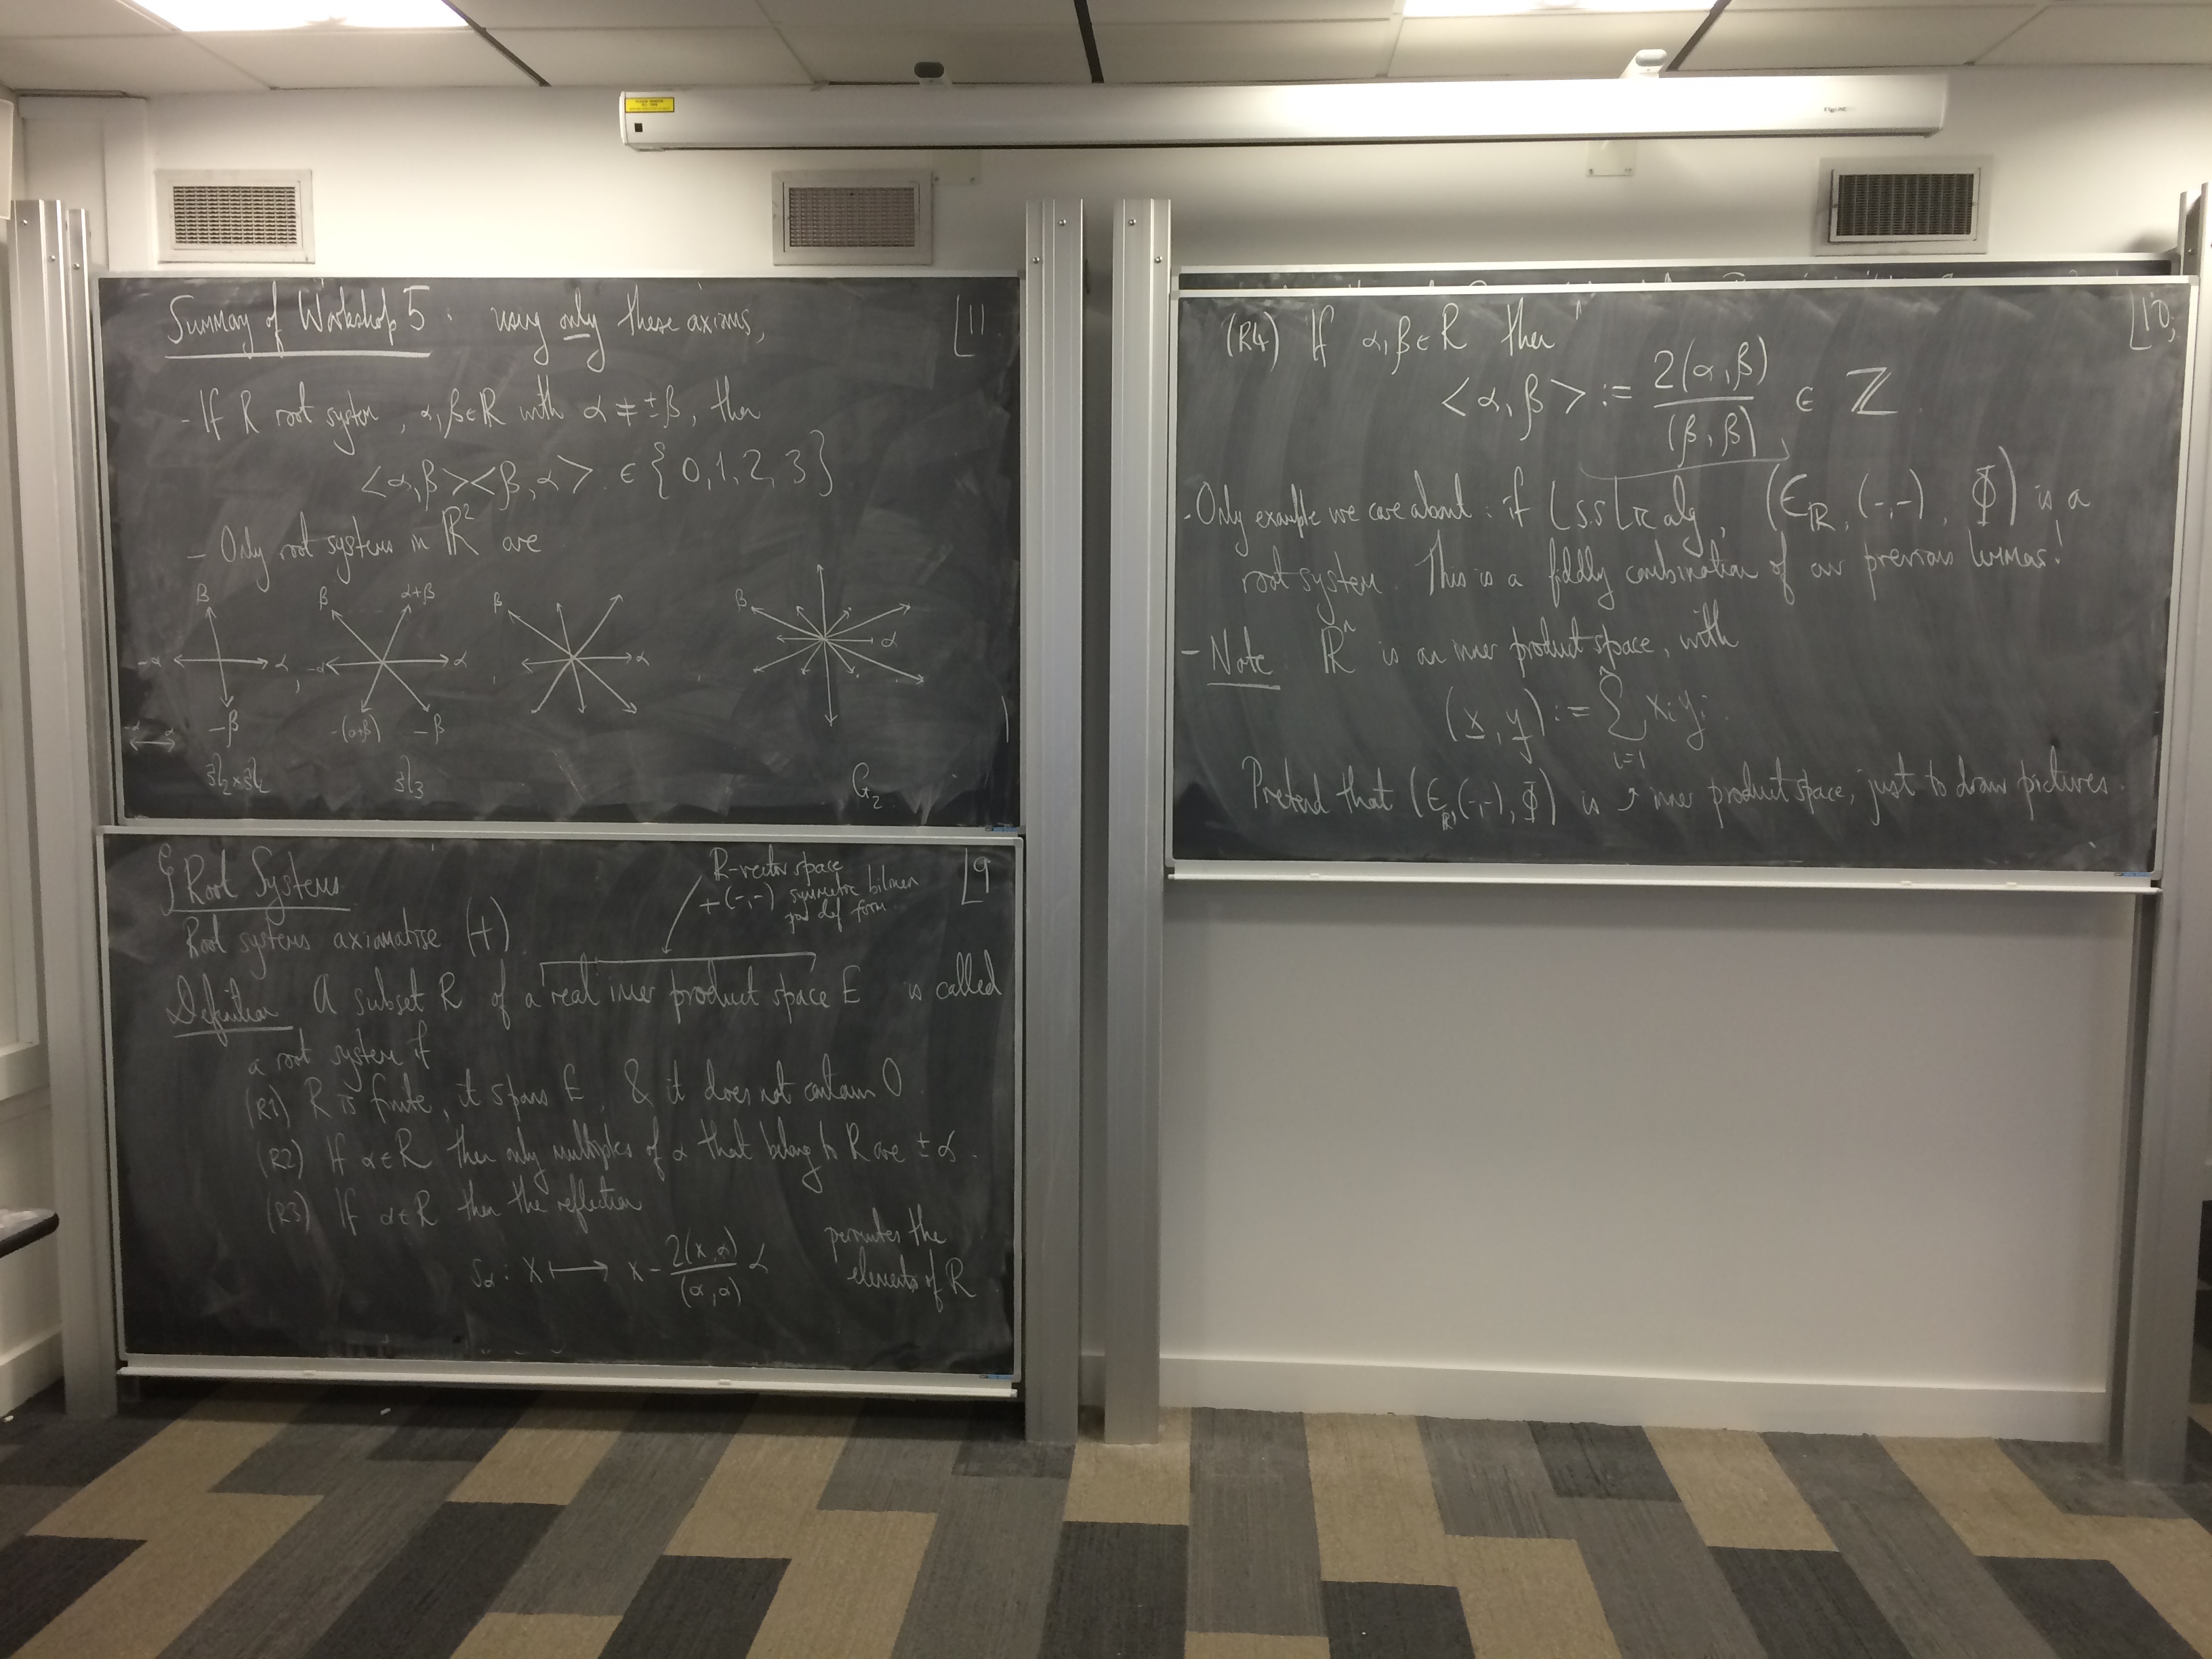 Summary of Workshop 5 : using only these axioms,
L11
- If R root system, α,β∈R with α ≠ ±β, then
<α,β><β,α> ∈ {0,1,2,3}
- Only root systems in ℝ² are
β
β
α+β
β
β
-α
α
,
-α
α
α
α
-β
-(α+β)
-β
-α
α
sl₂×sl₂
sl₃
G₂
§ Root Systems
L9
R-vector space
+ (-,-) symmetric bilinear
pos def form
Root systems axiomatise (+)
Definition A subset R of a real inner product space E is called
a root system if
(R1) R is finite, it spans E, & it does not contain 0
(R2) If α∈R then only multiples of α that belong to R are ±α.
(R3) If α∈R then the reflection
sα : x ⟼ x - 2(x,α)/(α,α) α permutes the
elements of R
(R4) If α,β∈R then
L10
<α,β> := 2(α,β)/(β,β) ∈ ℤ
- Only example we care about : if L s.s Lie alg, (E_ℝ, (-,-), Φ) is a
root system. This is a fiddly combination of our previous lemmas!
- Note ℝⁿ is an inner product space, with
(x,y) := Σ_{i=1}^{n} xᵢyᵢ
Pretend that (E_ℝ,(-,-),Φ) is ⤴ inner product space, just to draw pictures.